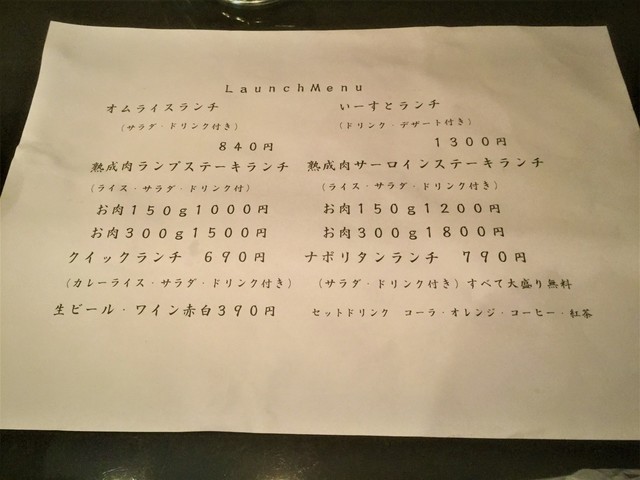 LaunchMenu
オムライスランチ
(サラダ・ドリンク付き)
840円
いーすとランチ
(ドリンク・デザート付き)
1300円
熟成肉ランプステーキランチ
(ライス・サラダ・ドリンク付)
お肉150g1000円
お肉300g1500円
熟成肉サーロインステーキランチ
(ライス・サラダ・ドリンク付き)
お肉150g1200円
お肉300g1800円
クイックランチ 690円
(カレーライス・サラダ・ドリンク付き)
ナポリタンランチ 790円
(サラダ・ドリンク付き)すべて大盛り無料
生ビール・ワイン赤白390円
セットドリンク コーラ・オレンジ・コーヒー・紅茶